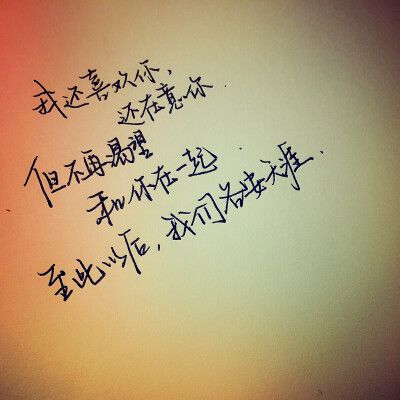 我还喜欢你，
还在意你．
但不再渴望
和你在一起
至此以后，我们各安天涯．